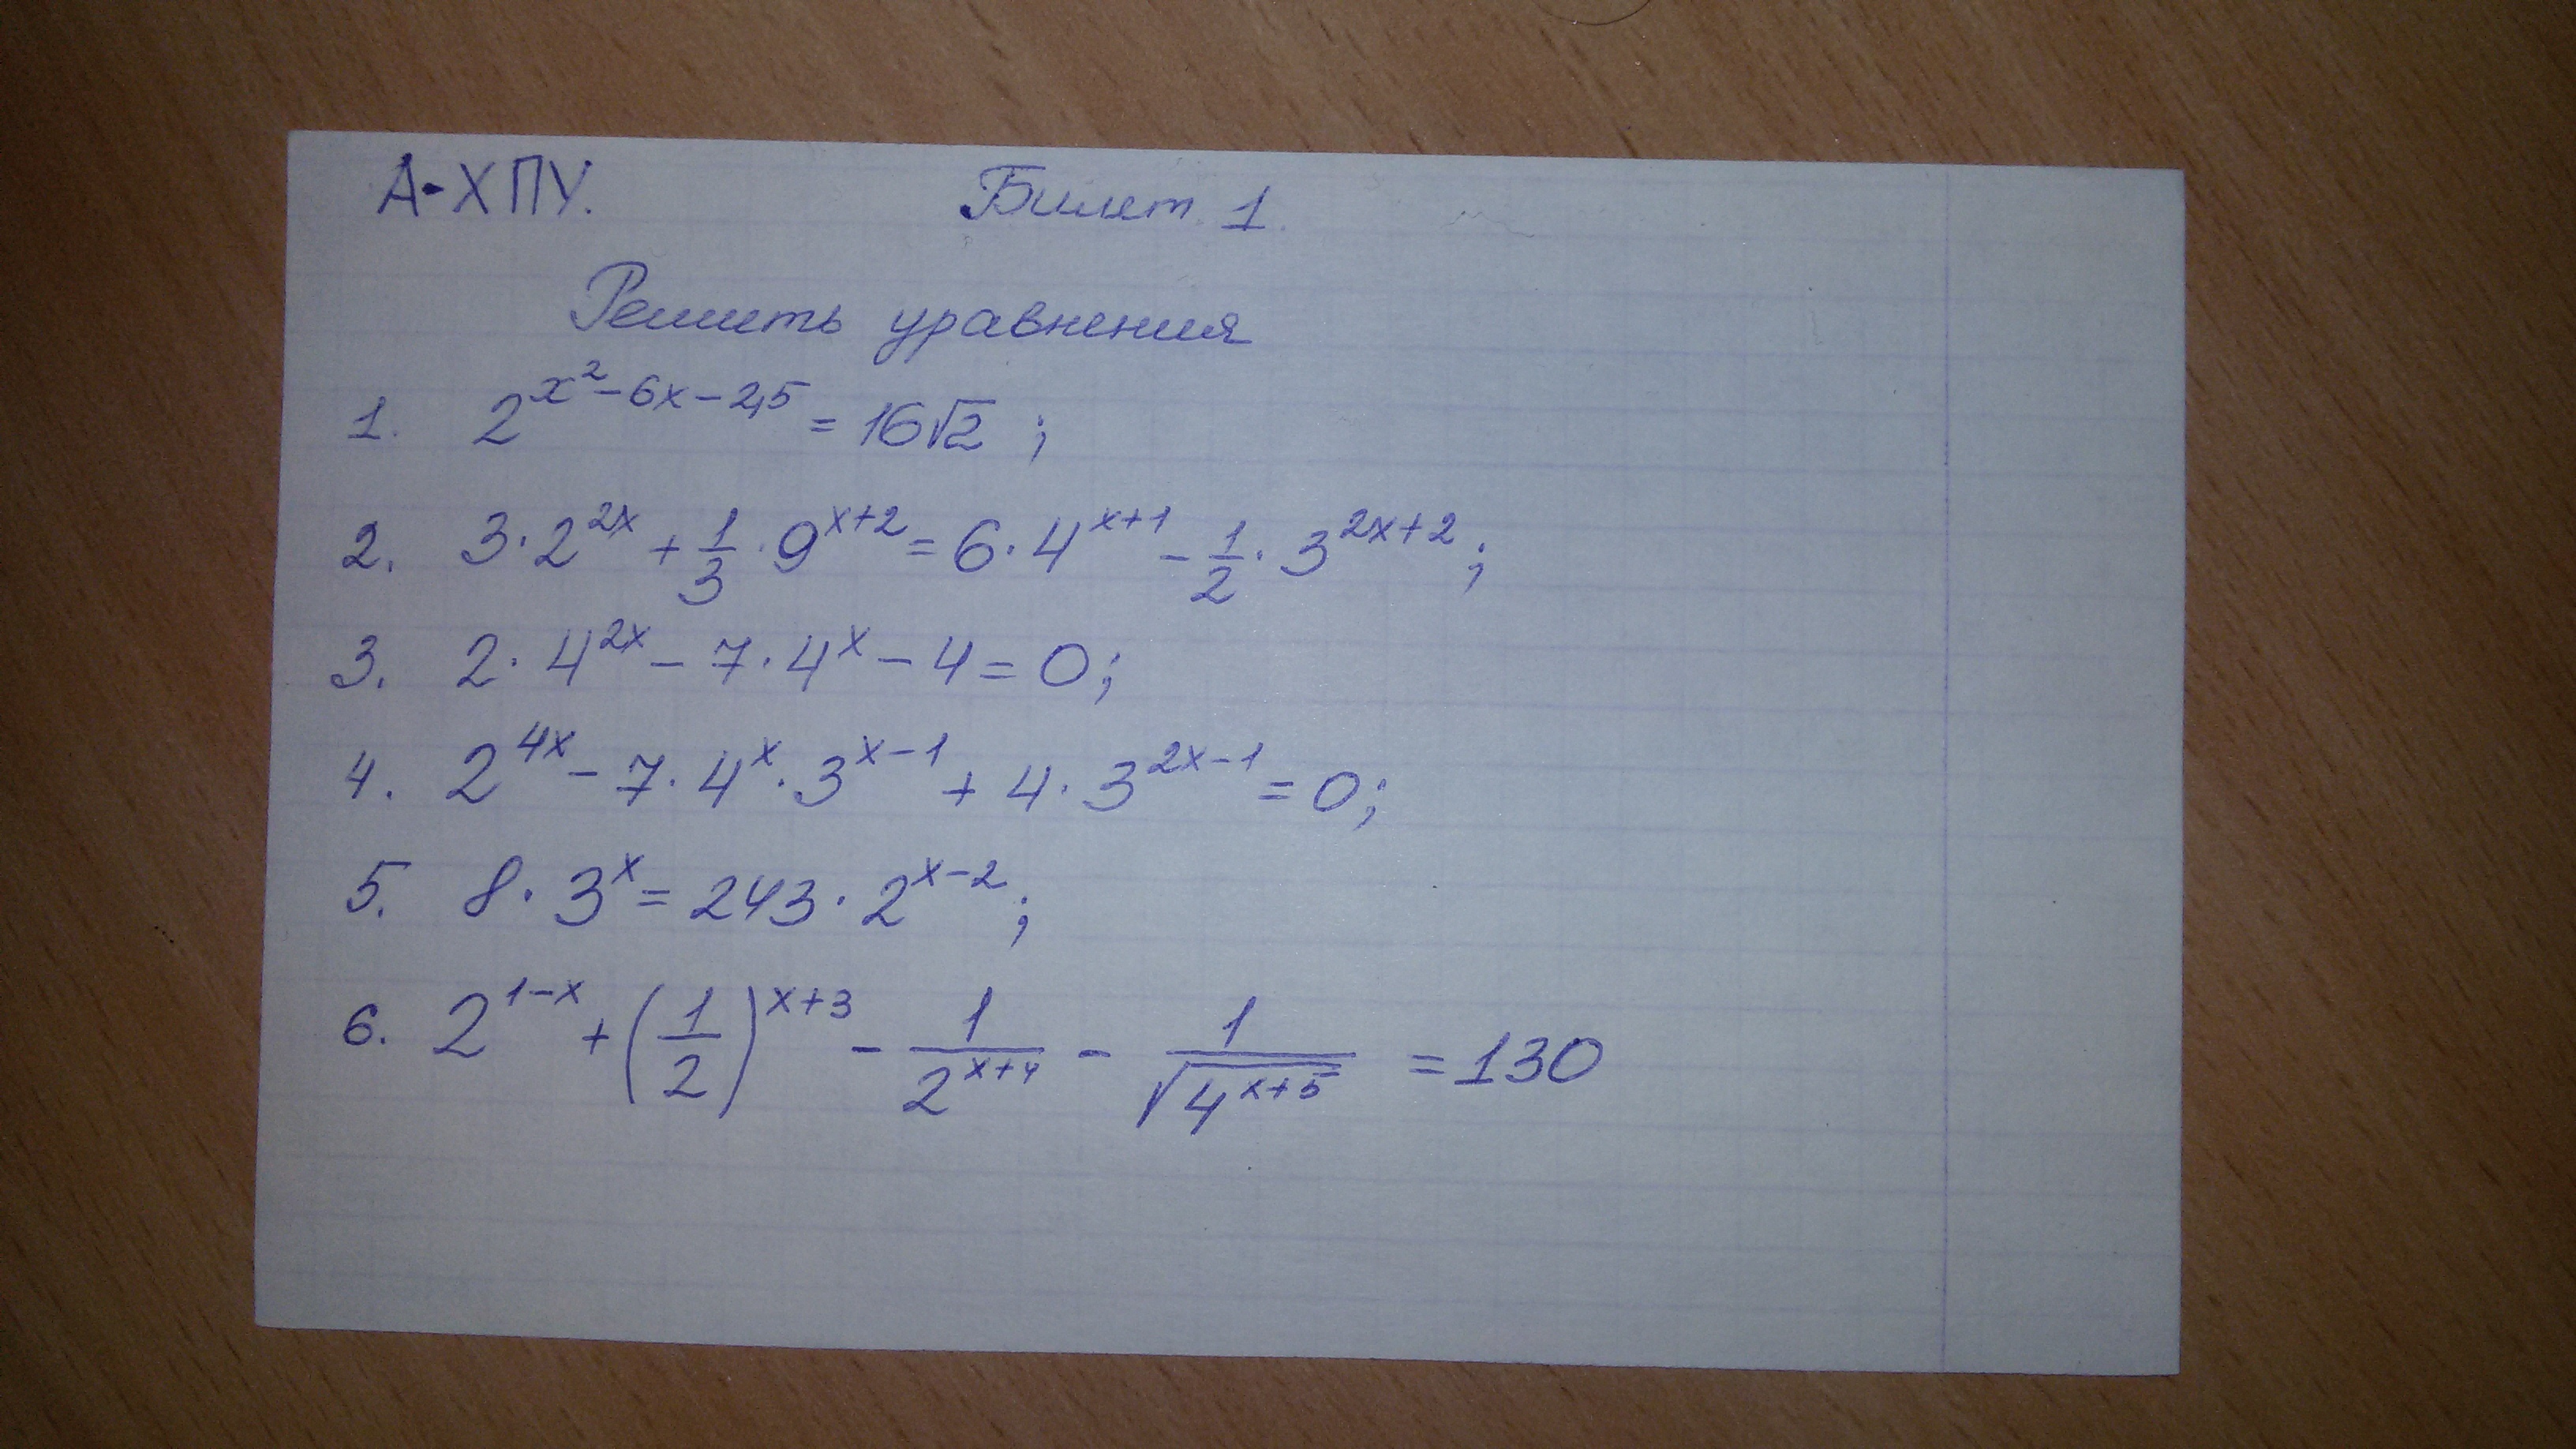 А-ХПУ. Билет 1.
Решить уравнения
1. 2^{x^2-6x-2,5} = 16√2 ;
2. 3·2^{2x} + 1/3 · 9^{x+2} = 6·4^{x+1} - 1/2 · 3^{2x+2} ;
3. 2·4^{2x} - 7·4^x - 4 = 0;
4. 2^{4x} - 7·4^x·3^{x-1} + 4·3^{2x-1} = 0;
5. 8·3^x = 243·2^{x-2} ;
6. 2^{1-x} + (1/2)^{x+3} - 1/2^{x+4} - 1/√(4^{x+5}) = 130